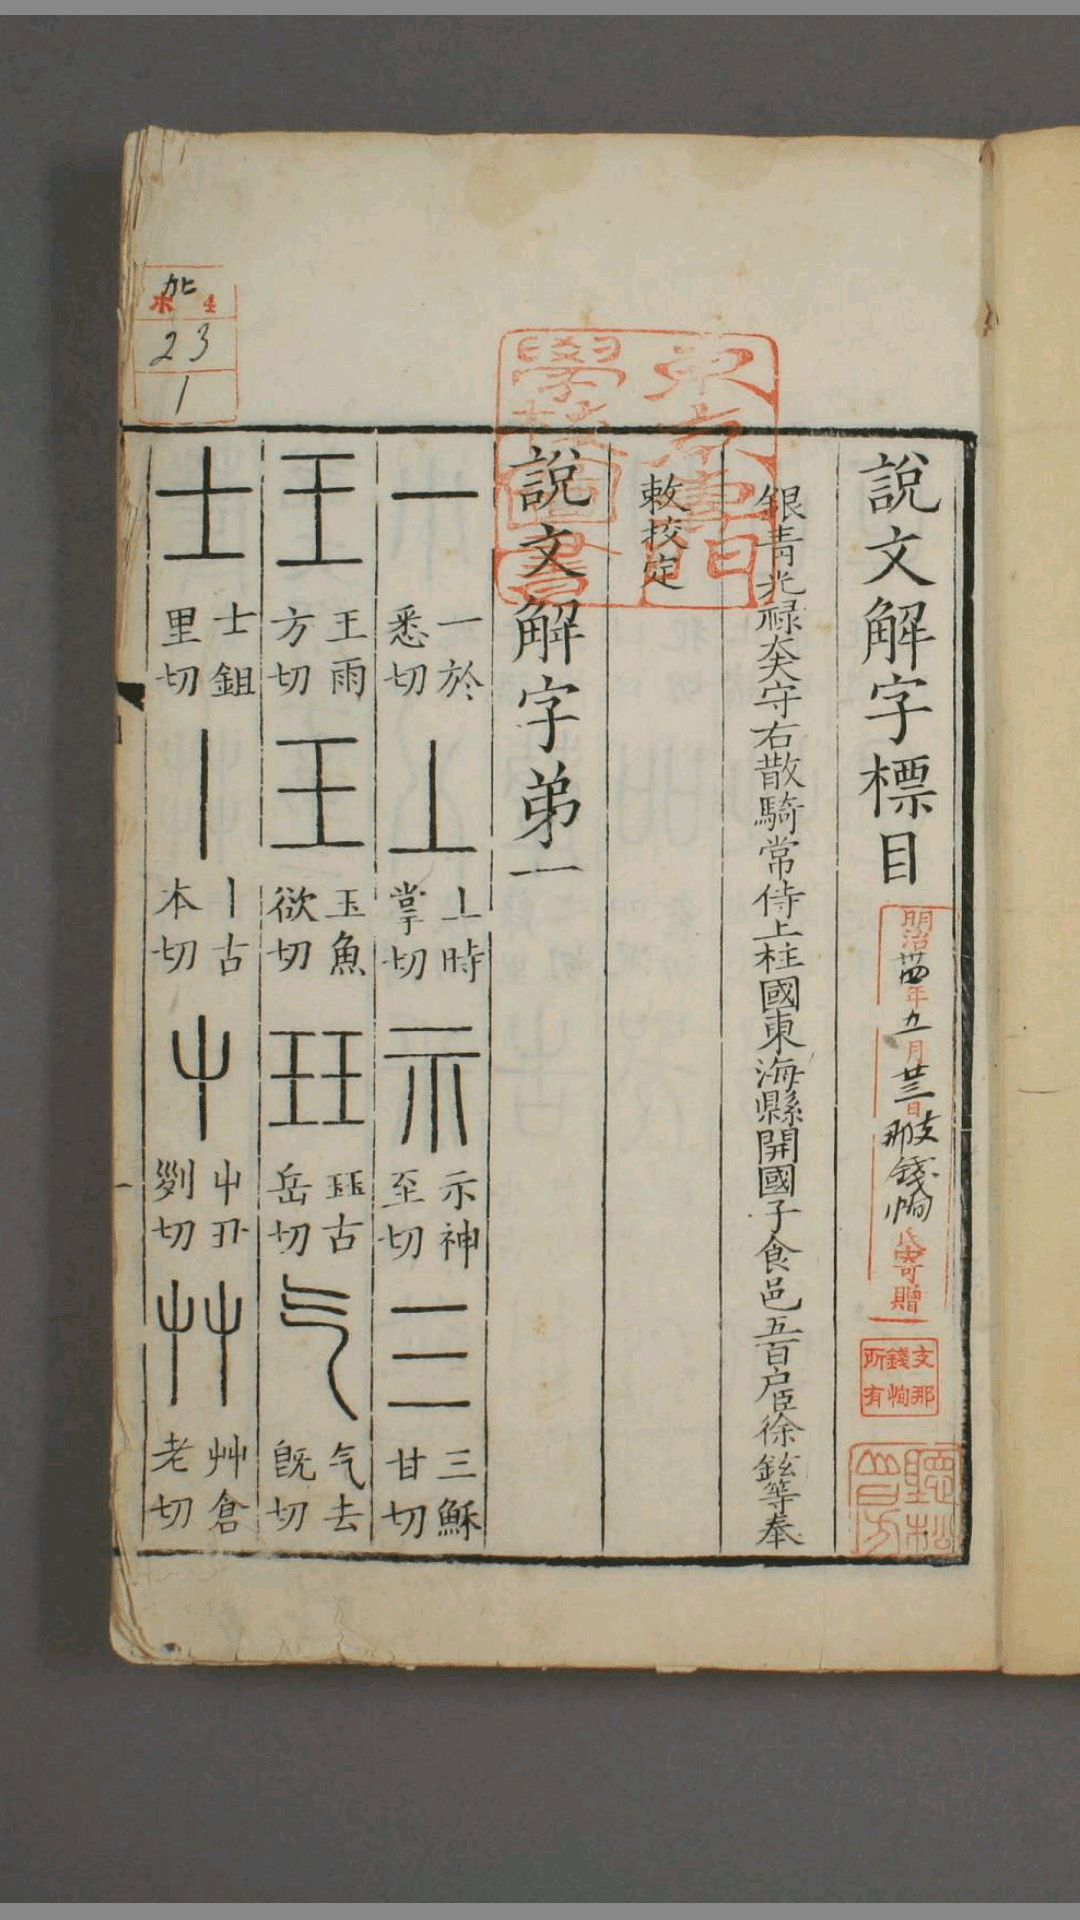 說文解字標目
銀青光祿大夫守右散騎常侍上柱國東海縣開國子食邑五百户臣徐鉉等奉
敕校定
說文解字弟一
一 一於悉切 丄 丄時掌切 示 示神至切 三 三穌甘切
王 王雨方切 王 玉魚欲切 玨 玨古岳切 气 气去旣切
士 士鉏里切 丨 丨古本切 屮 屮丑列切 艸 艸倉老切
東京專門學校圖書
明治卅四年九月廿三日支那錢恂氏寄贈
支那錢恂所有
4
23
1